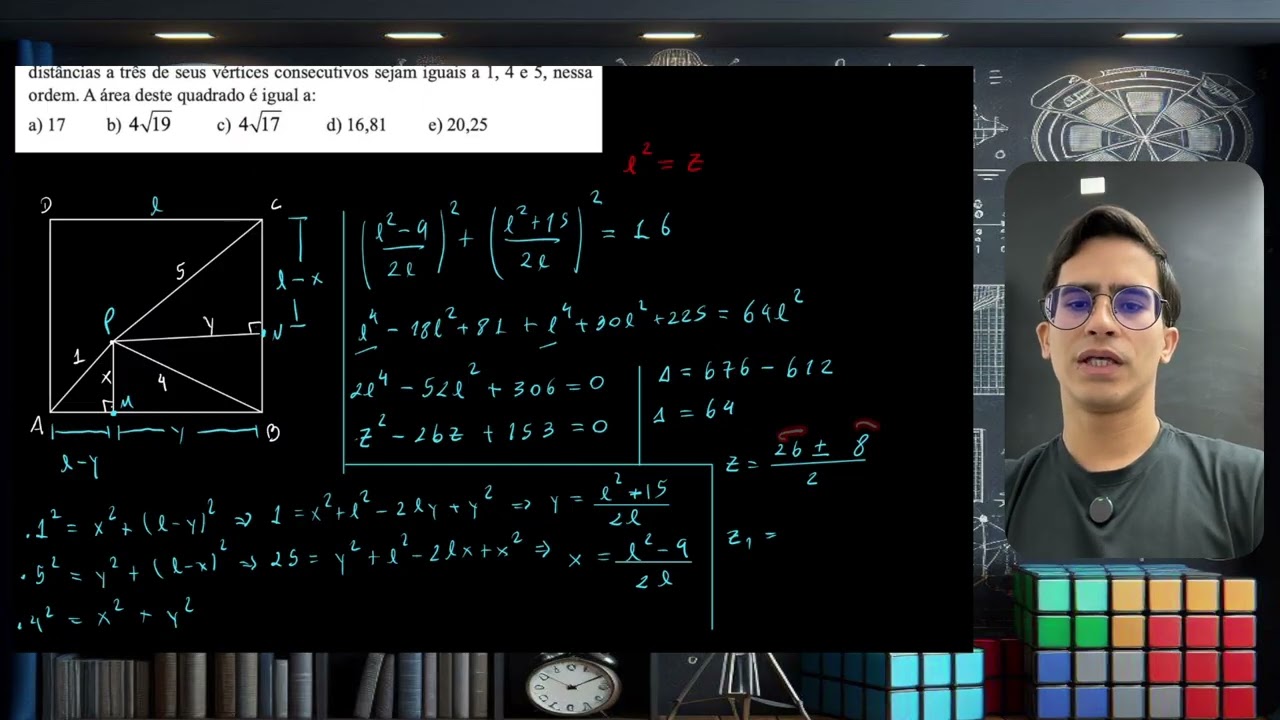 distâncias a três de seus vértices consecutivos sejam iguais a 1, 4 e 5, nessa
ordem. A área deste quadrado é igual a:
a) 17 b) 4√19 c) 4√17 d) 16,81 e) 20,25
l² = z
D l C
5
l-x
P
y
N
1
x
4
M
A
y
B
l-y
((l²-9)/2l)² + ((l²+15)/2l)² = 16
l⁴ - 18l² + 81 + l⁴ + 30l² + 225 = 64l²
2l⁴ - 52l² + 306 = 0
z² - 26z + 153 = 0
Δ = 676 - 612
Δ = 64
z = (26 ± 8)/2
z₁ =
.1² = x² + (l-y)² ⇒ 1 = x² + l² - 2ly + y² ⇒ y = (l²+15)/2l
.5² = y² + (l-x)² ⇒ 25 = y² + l² - 2lx + x² ⇒ x = (l²-9)/2l
.4² = x² + y²